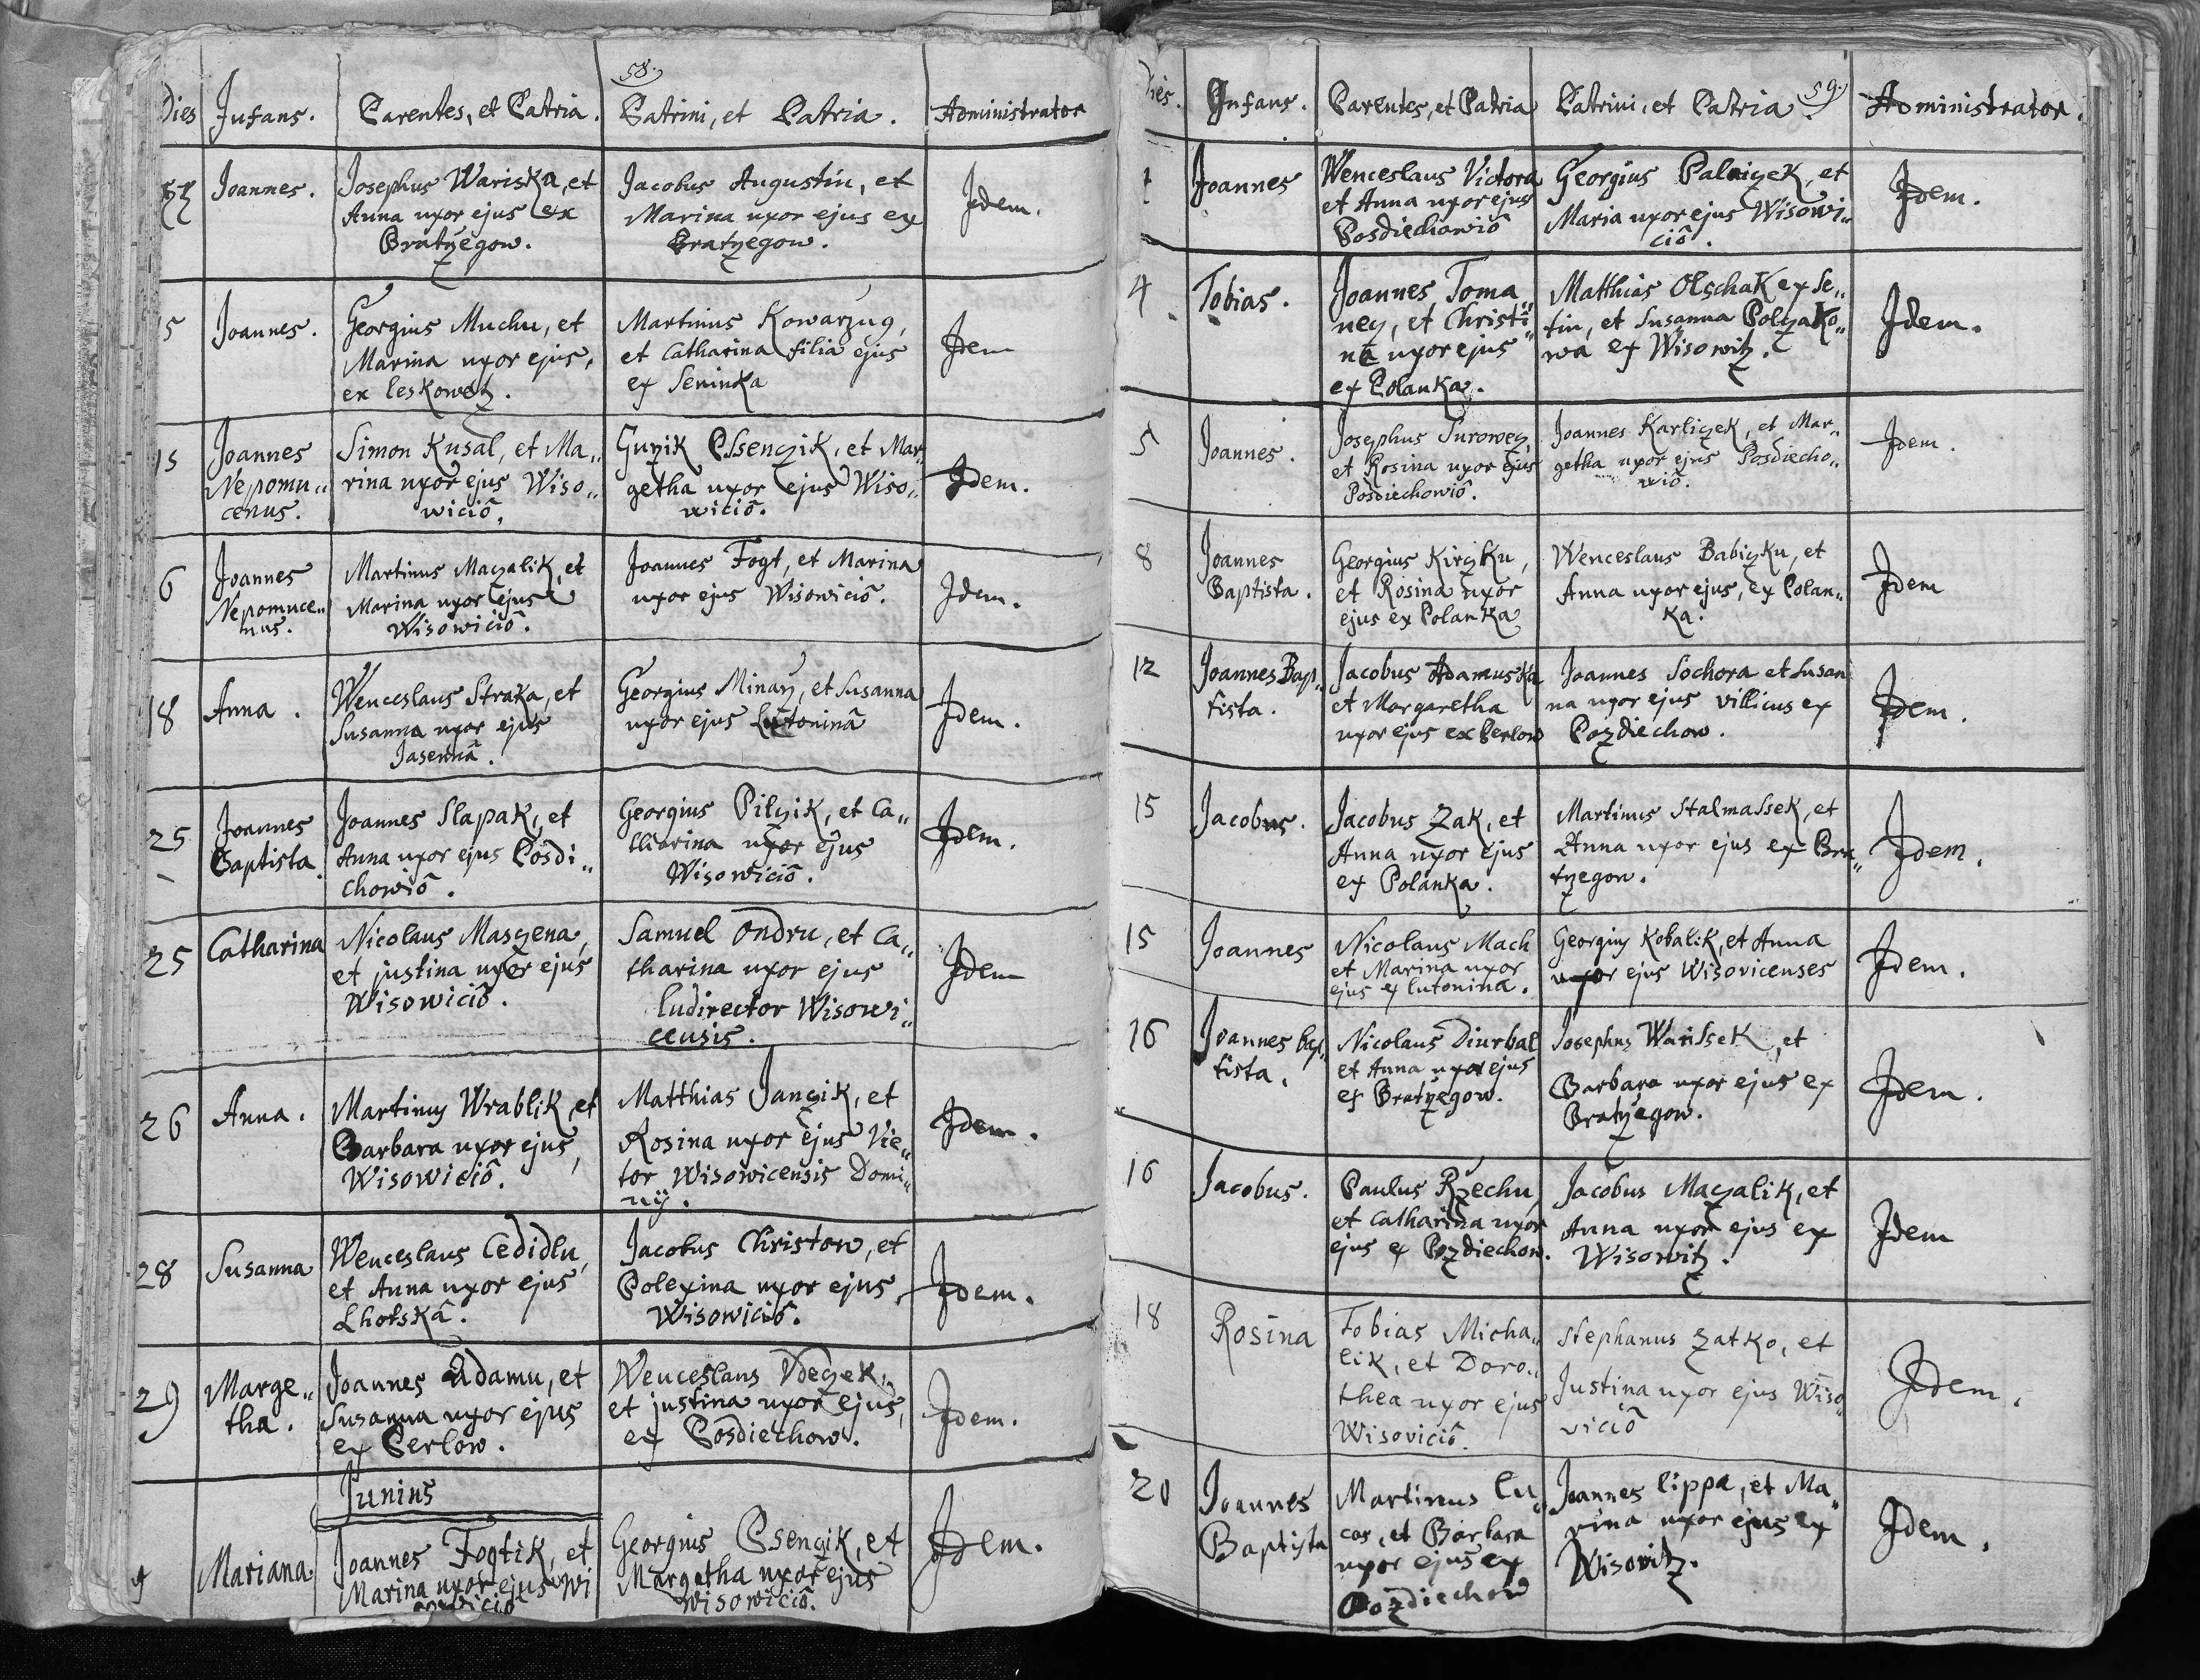 58.
Dies Infans. Parentes, et Patria. Patrini, et Patria. Administrator
Joannes. Josephus Wariska, et Anna uxor ejus ex Bratřegow. Jacobus Augustin, et Marina uxor ejus ex Bratřegow. Idem.
15 Joannes. Georgius Muchu, et Marina uxor ejus, ex Leskowetz. Martinus Kowarzug, et Catharina filia ejus ex Seninka Idem
15 Joannes Nepomu„ cenus. Simon Kusal, et Ma„ rina uxor ejus Wiso„ wiciô. Guřik Pssenczik, et Mar„ getha uxor ejus Wiso„ wiciô. Idem.
6 Joannes Nepomuce„ nus. Martinus Maczalik, et Marina uxor ejus Wisowiciô. Joannes Fogt, et Marina uxor ejus Wisowiciô. Idem.
18 Anna. Wenceslaus Straka, et Susanna uxor ejus Jasennâ. Georgius Minarz, et Susanna uxor ejus Lutoninâ Idem.
25 Joannes Baptista. Joannes Slapak, et Anna uxor ejus Posdi„ chowiô. Georgius Pilczik, et Ca„ tharina uxor ejus Wisowiciô. Idem.
25 Catharina Nicolaus Masczena, et justina uxor ejus Wisowiciô. Samuel Ondru, et Ca„ tharina uxor ejus ludirector Wisowi„ censis. Idem
26 Anna. Martinus Wrablik, et Barbara uxor ejus, Wisowiciô. Matthias Janczik, et Rosina uxor ejus Vie„ tor Wisowicensis Domi„ nij. Idem.
28 Susanna Wenceslaus Cedidlu, et Anna uxor ejus Lhotskâ. Jacobus Christow, et Polexina uxor ejus, Wisowiciô. Idem.
29 Marge„ tha. Joannes Adamu, et Susanna uxor ejus ex Perlow. Wenceslaus Vdeczek, et justina uxor ejus, ex Posdiechow. Idem.
Junius
Mariana. Joannes Fogtik, et Marina uxor ejus Wi sowiciô Georgius Psenczik, et Margetha uxor ejus Wisowiciô. Idem.
59.
Dies. Infans. Parentes, et Patria Patrini, et Patria. Administrator.
1 Joannes Wenceslaus Victora et Anna uxor ejus Posdiechowiô Georgius Palniczek, et Maria uxor ejus Wisowi„ ciô. Idem.
4 Tobias. Joannes Toma„ necz, et Christi„ na uxor ejus ex Polanka. Matthias Olschak ex Se„ tin, et Susanna Polczako„ wa ex Wisowitz. Idem.
5 Joannes. Josephus Surowecz, et Rosina uxor ejus Posdiechowiô. Joannes Karliczek, et Mar„ getha uxor ejus Posdiecho„ wiô. Idem.
8 Joannes Baptista. Georgius Kirczku, et Rosina uxor ejus ex Polanka Wenceslaus Babiczku, et Anna uxor ejus, ex Polan„ ka. Idem
12 Joannes Bap„ tista. Jacobus Adamuska et Margaretha uxor ejus ex Perlow Joannes Sochora et Susan na uxor ejus villicus ex Pozdiechow. Idem.
15 Jacobus. Jacobus Zak, et Anna uxor ejus ex Polanka. Martinus Stalmassek, et Anna uxor ejus ex Bra„ třegow. Idem.
15 Joannes Nicolaus Mach et Marina uxor ejus ex Lutonina. Georgius Kobalik, et Anna uxor ejus Wisovicenses Idem.
16 Joannes bap„ tista. Nicolaus Diurbal et Anna uxor ejus ex Bratřegow. Josephus Warissek, et Barbara uxor ejus ex Bratřegow. Idem.
16 Jacobus. Paulus Rzechu, et Catharina uxor ejus ex Pozdiechow. Jacobus Maczalik, et Anna uxor ejus ex Wisowitz. Idem
18 Rosina Tobias Micha„ lik, et Doro„ thea uxor ejus Wisoviciô. Stephanus Zatko, et Justina uxor ejus Wiso„ viciô Idem.
20 Joannes Baptista Martinus Lu„ cas, et Barbara uxor ejus ex Pozdiechow Joannes Lippa, et Ma„ rina uxor ejus ex Wisovitz. Idem.